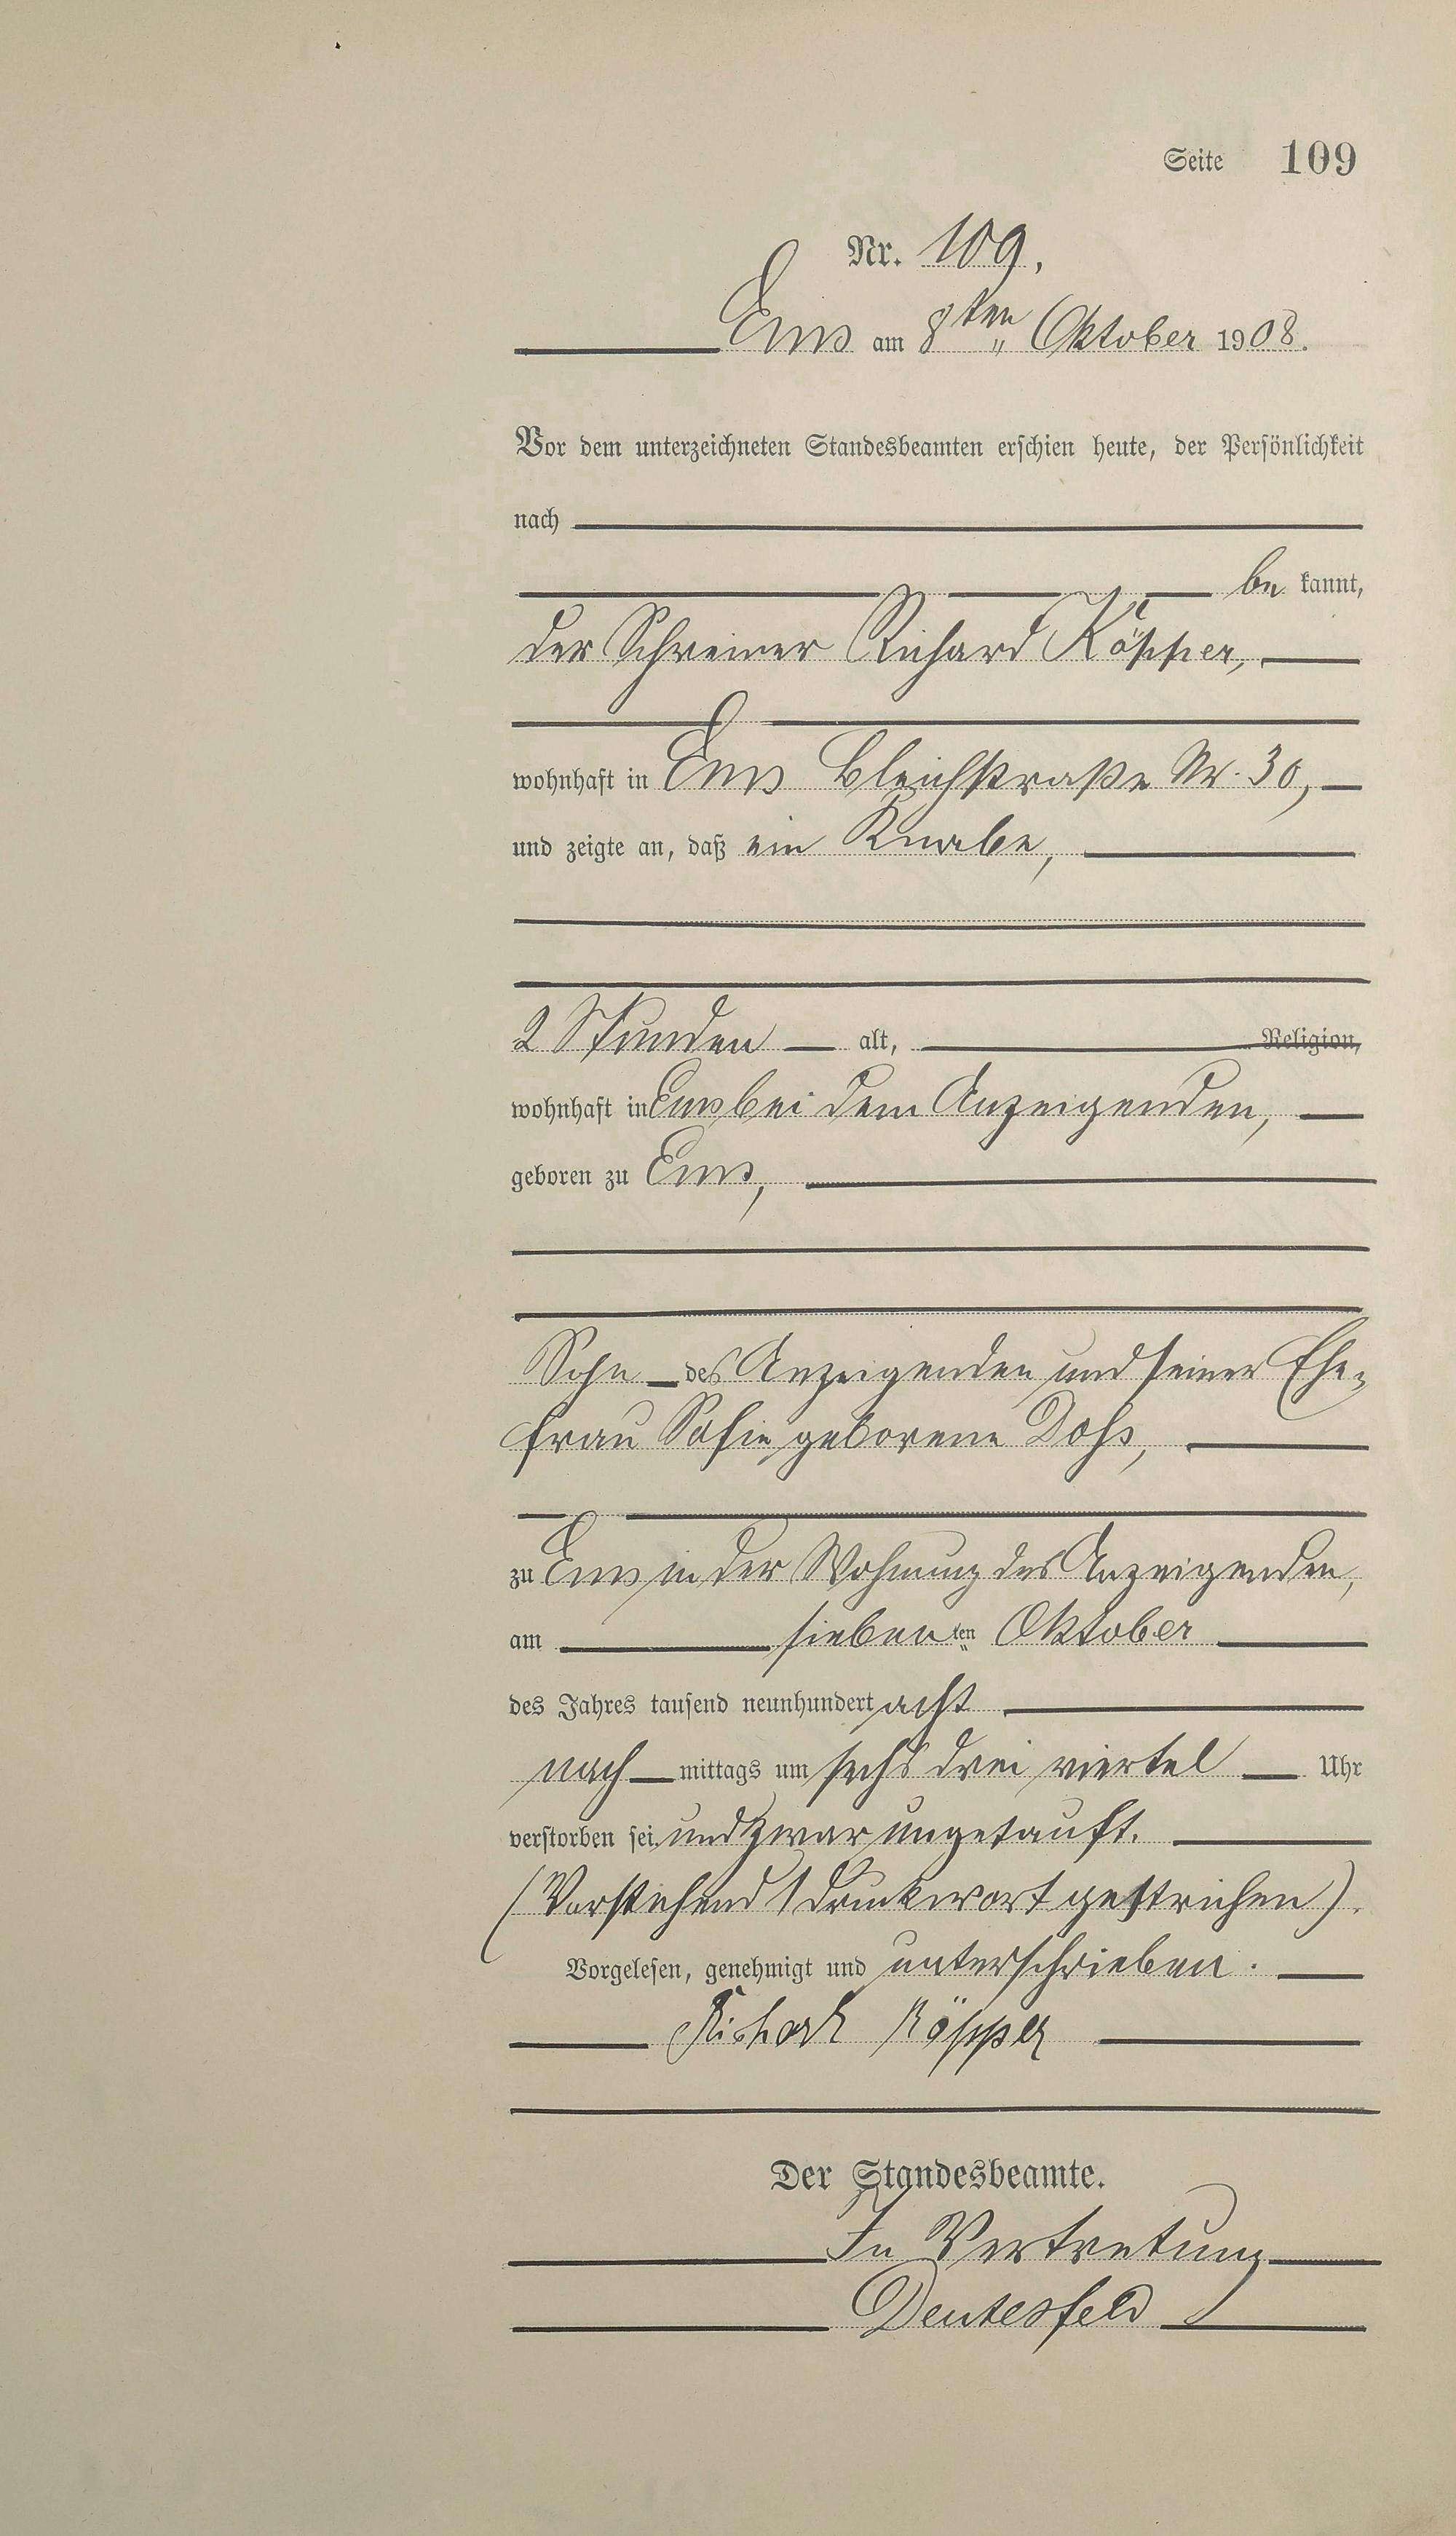 Seite 109
Nr. 109.
Ems am 8ten Oktober 1908.
Vor dem unterzeichneten Standesbeamten erschien heute, der Persönlichkeit
nach
be kannt,
der Schreiner Richard Köpper,
wohnhaft in Ems Bleichstraße Nr. 30,
und zeigte an, daß ein Knabe,
2 Stunden alt, Religion,
wohnhaft in Ems bei dem Anzeigenden,
geboren zu Ems,
Sohn des Anzeigenden und seiner Ehe-
frau Sofie geborene Doß,
zu Ems in der Wohnung des Anzeigenden,
am siebenten Oktober
des Jahres tausend neunhundert acht
nach mittags um sechs drei viertel Uhr
verstorben sei, und zwar ungetauft.
(Vorstehend 1 Druckwort gestrichen).
Vorgelesen, genehmigt und unterschrieben.
Richard Köpper
Der Standesbeamte.
In Vertretung
Deutesfeld